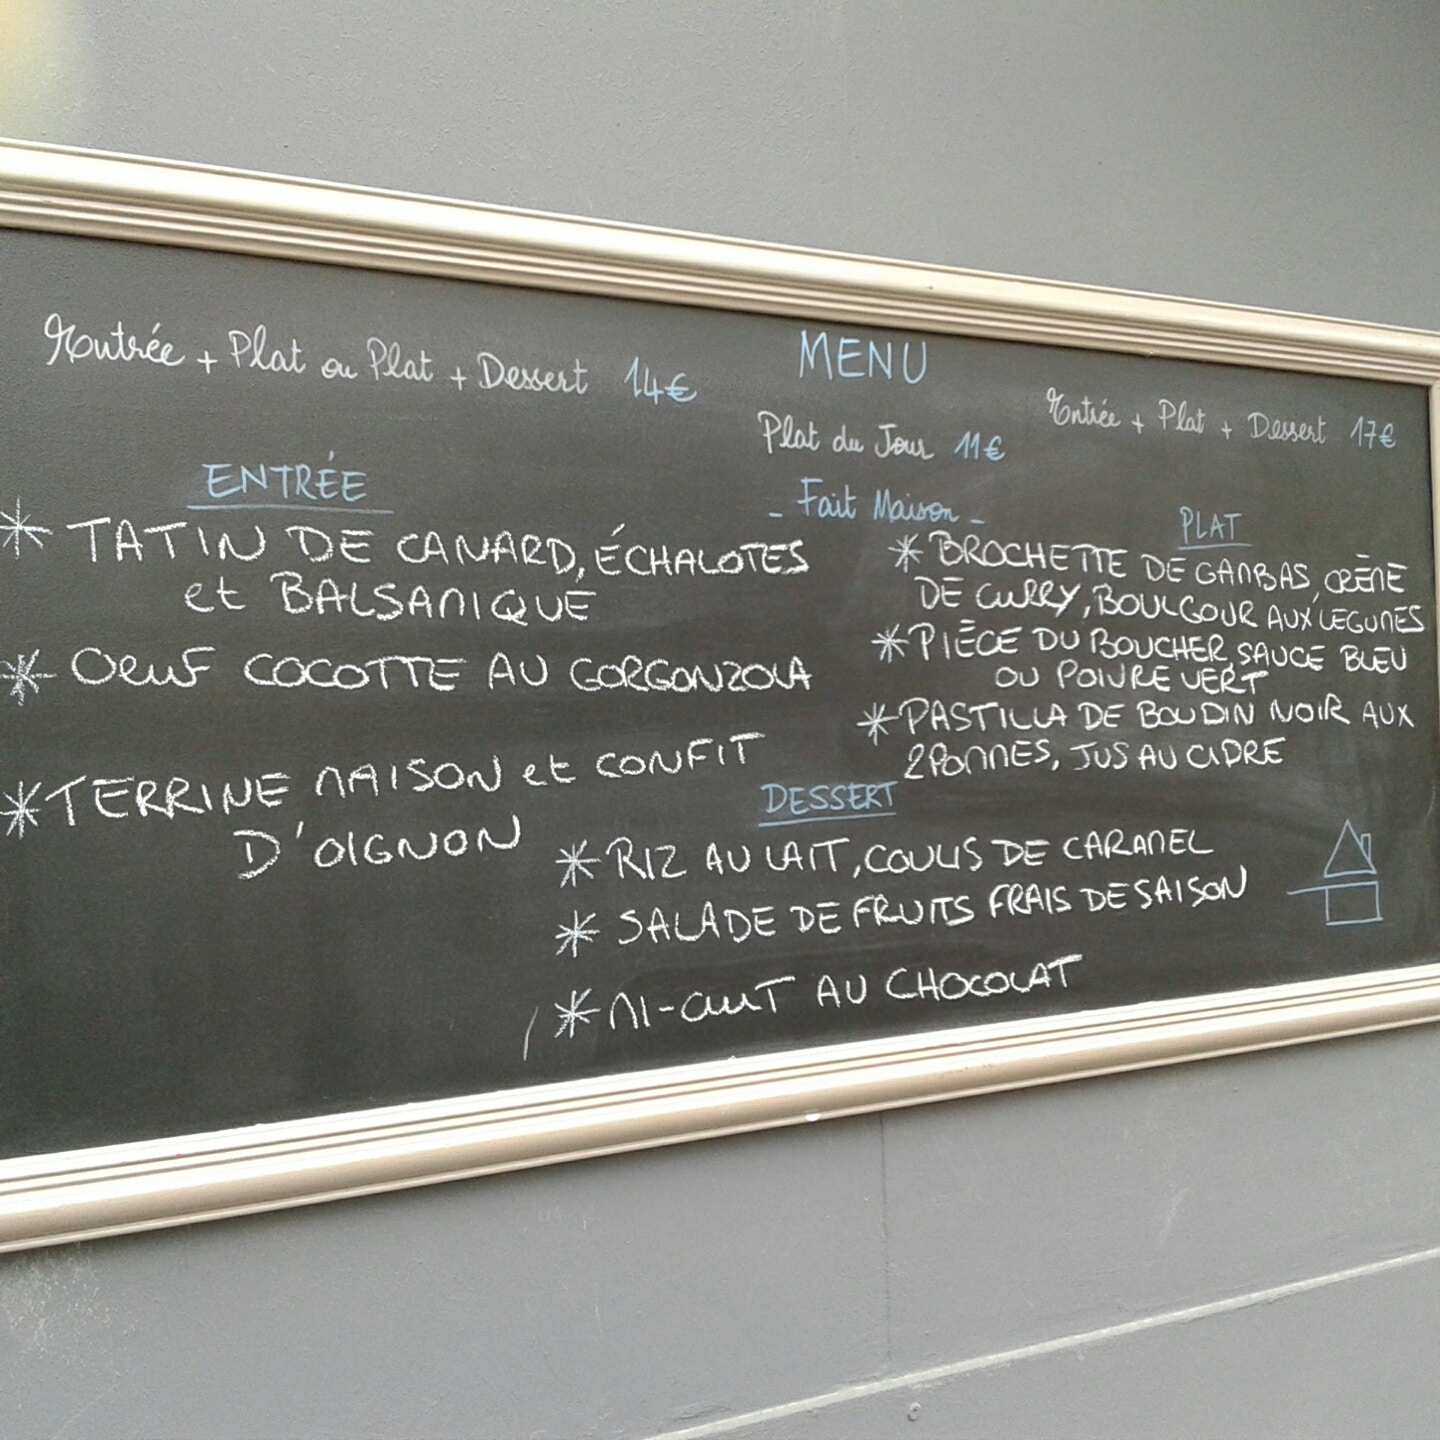 MENU
Entrée + Plat ou Plat + Dessert 14€
Plat du Jour 11€
Entrée + Plat + Dessert 17€
- Fait Maison -
ENTRÉE
* TATIN DE CANARD, ÉCHALOTES
et BALSAMIQUE
* OEUF COCOTTE AU GORGONZOLA
* TERRINE MAISON et CONFIT
D'OIGNON
PLAT
* BROCHETTE DE GAMBAS, CRÈME
DE CURRY, BOULGOUR AUX LEGUMES
* PIÈCE DU BOUCHER, SAUCE BLEU
OU POIVRE VERT
* PASTILLA DE BOUDIN NOIR AUX
2 POMMES, JUS AU CIDRE
DESSERT
* RIZ AU LAIT, COULIS DE CARAMEL
* SALADE DE FRUITS FRAIS DE SAISON
* MI-CUIT AU CHOCOLAT